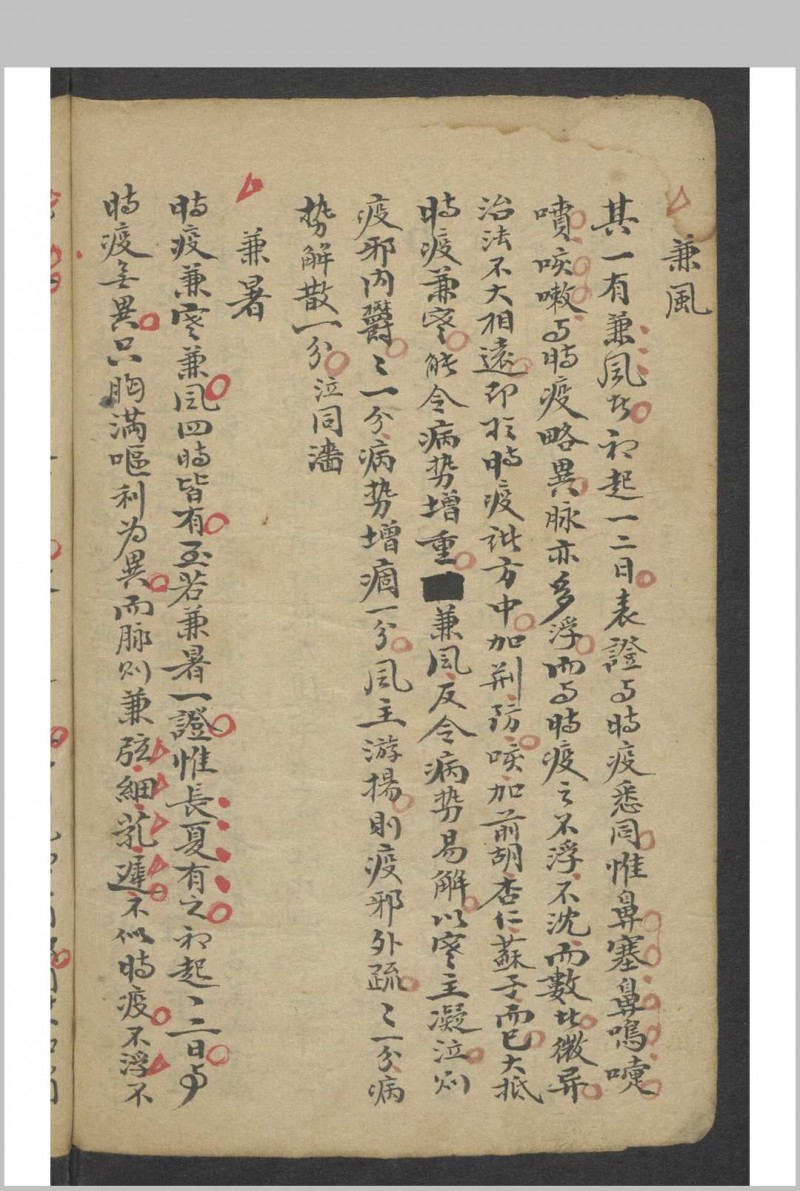 兼風
其一有兼風者初起一二日表證与時疫悉同惟鼻塞鼻鳴嚏
噴咳嗽与時疫略異脉亦多浮而与時疫之不浮不沈而數者微异
治法不大相遠即於時疫諸方中加荆防咳加前胡杏仁蘇子而已大抵
時疫兼寒能令病势增重兼風反令病势易解以寒主凝泣則
疫邪内鬱〻一分病势增痼一分風主游揚則疫邪外疏〻一分病
势解散一分泣同濇
兼暑
時疫兼寒兼風四時皆有至若兼暑一證惟長夏有之初起一二日与
時疫無異只胸满嘔利为異而脉则兼弦細芤遲不似時疫不浮不